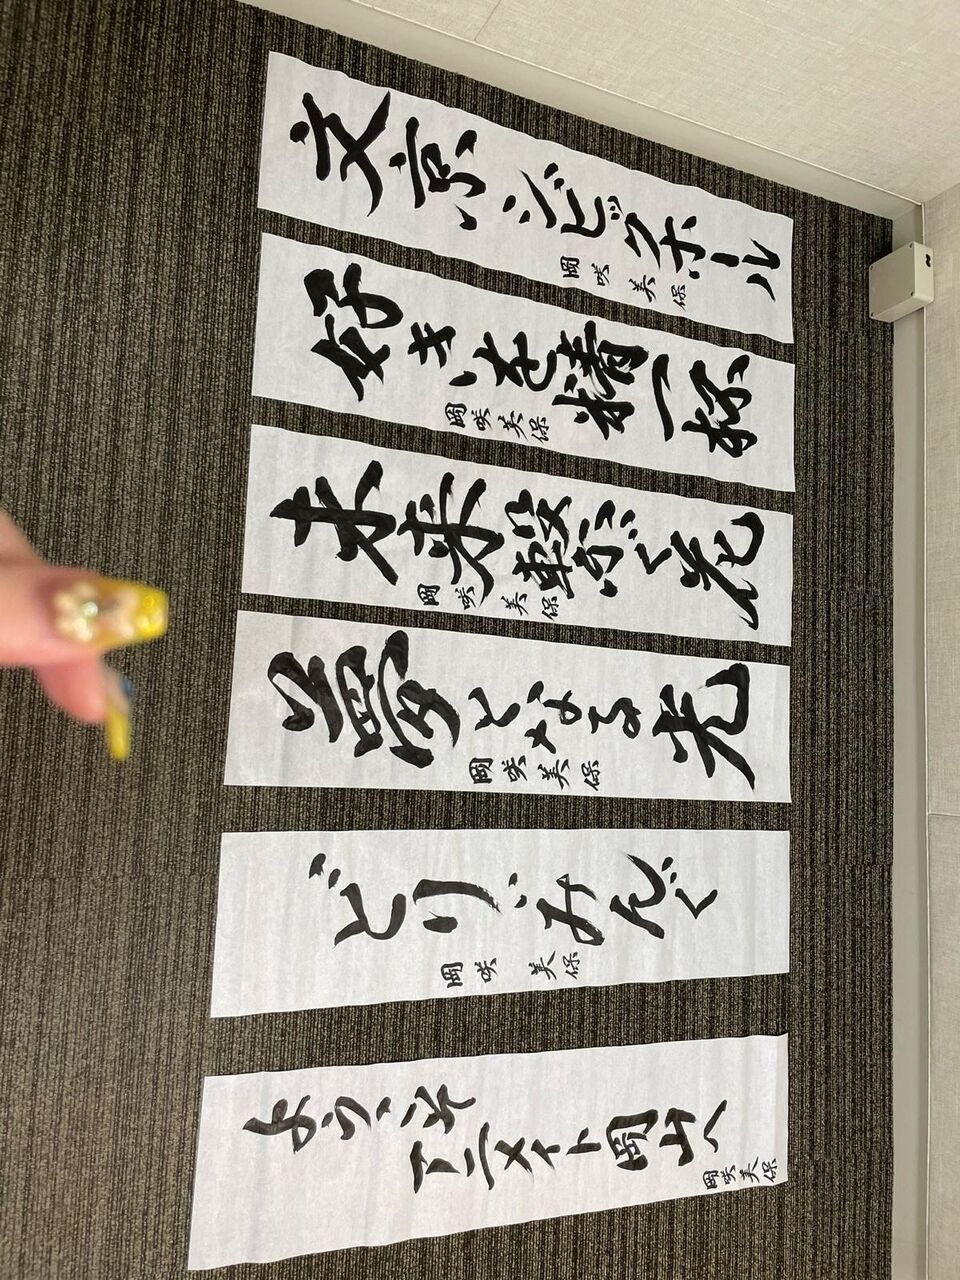 文京シビックホール
岡咲美保
好きを精一杯
岡咲美保
未来繋ぐ花
岡咲美保
夢となる光
岡咲美保
どり、みんぐ
岡咲美保
ようこそ
アニメイト岡山へ
岡咲美保